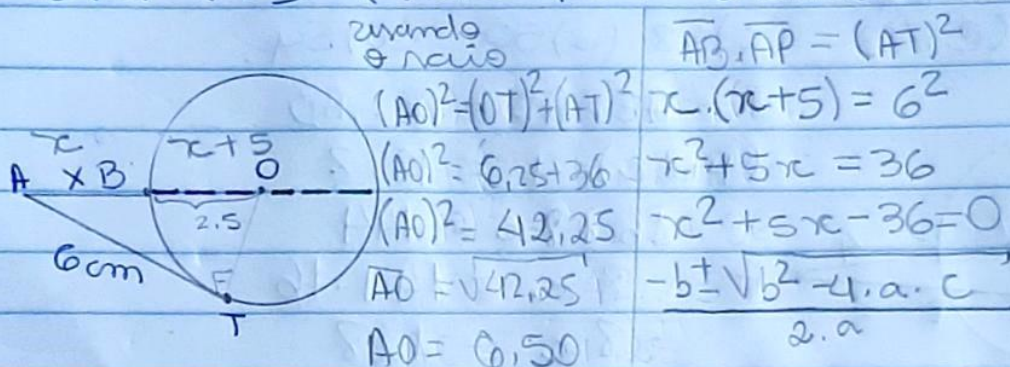 x
x + 5
O
A x B
2.5
6cm
T
usando
o raio
(AO)² = (OT)² + (AT)²
(AO)² = 6,25 + 36
(AO)² = 42,25
AO = √42,25
AO = 6,50
AB . AP = (AT)²
x . (x + 5) = 6²
x² + 5x = 36
x² + 5x - 36 = 0
-b ± √b² - 4 . a . c
2 . a